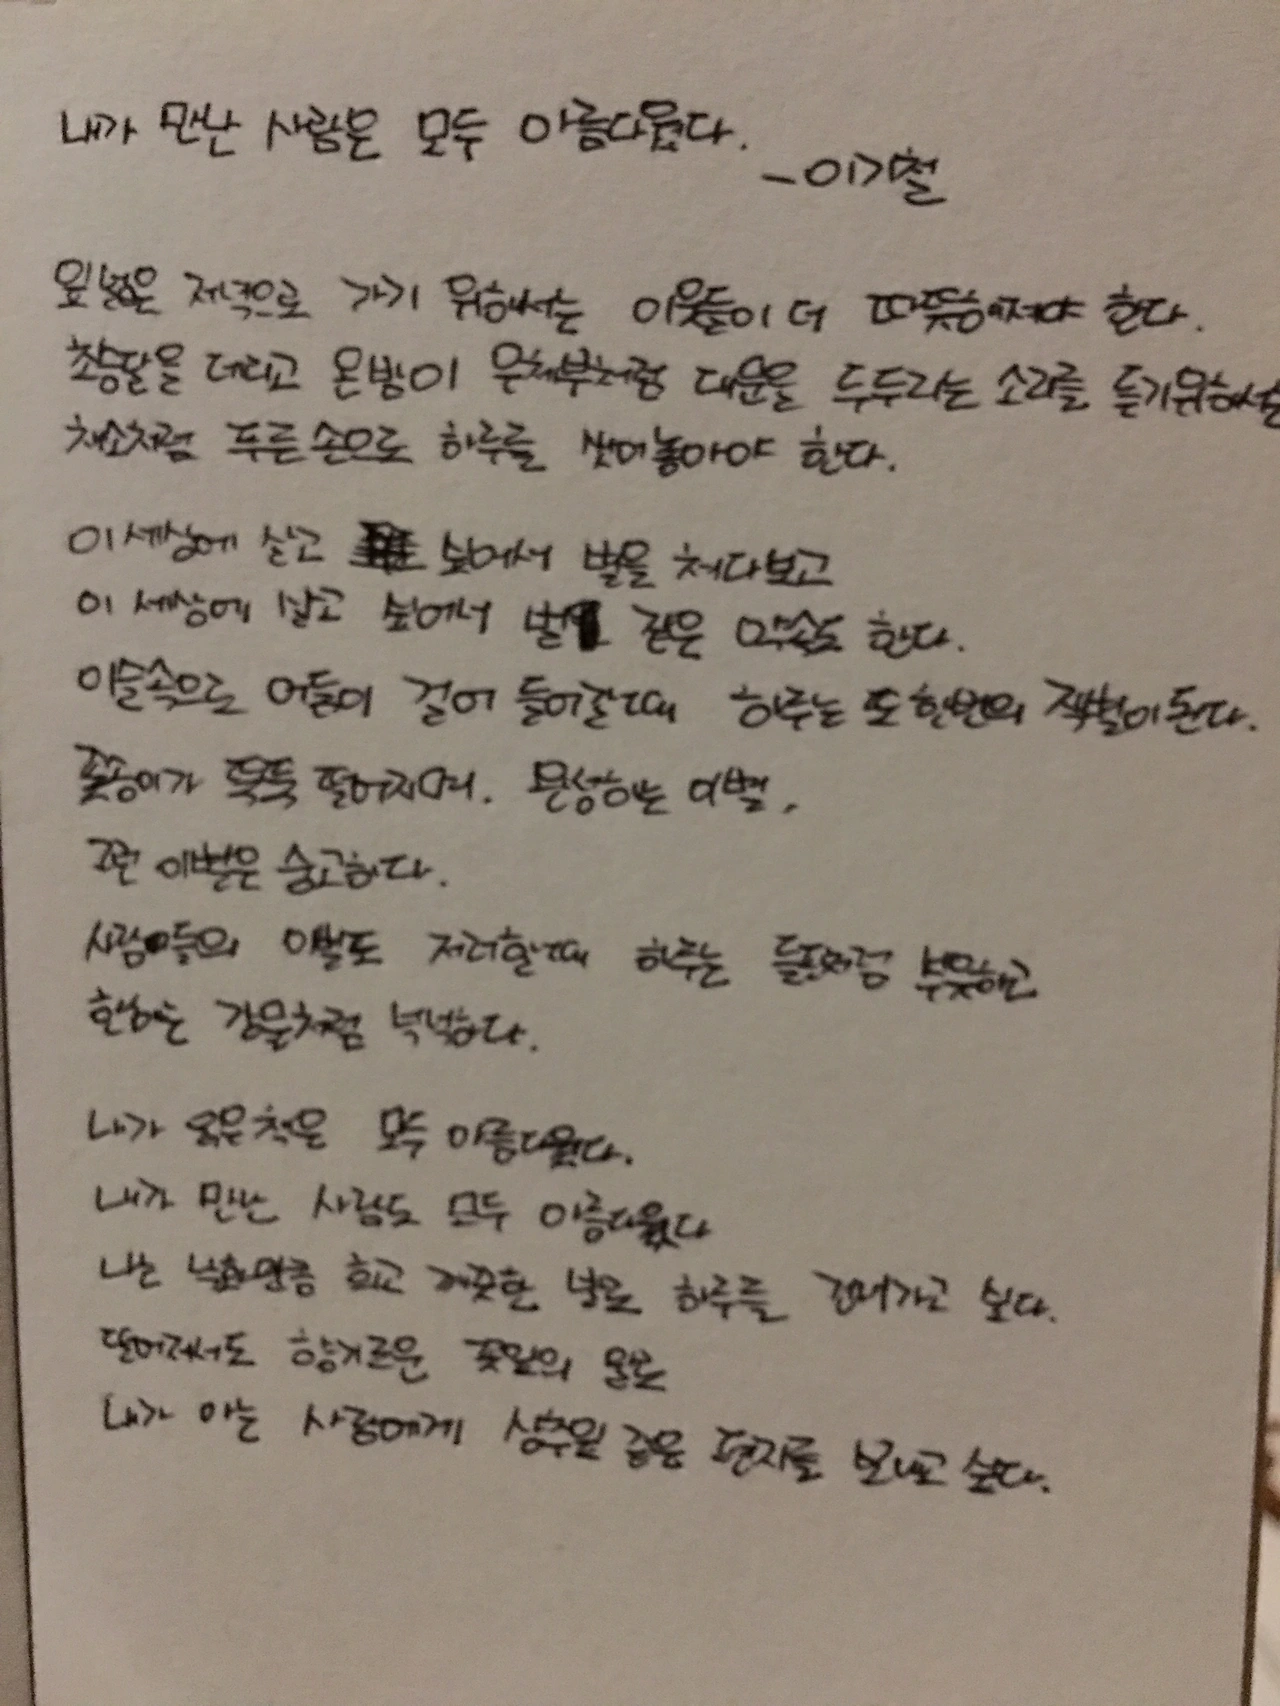 내가 만난 사람은 모두 아름다웠다.
-이기철
잎 넓은 저녁으로 가기 위해서는 이웃들이 더 따뜻해져야 한다.
초승달을 데리고 온 밤이 우체부처럼 대문을 두드리는 소리를 듣기위해서는
채소처럼 푸른 손으로 하루를 씻어놓아야 한다.
이 세상에 살고 싶어서 별을 쳐다보고
이 세상에 살고 싶어서 별 같은 약속도 한다.
이슬속으로 어둠이 걸어 들어갈때 하루는 또 한번의 작별이 된다.
꽃송이가 뚝뚝 떨어지며 완성하는 이별,
그런 이별은 숭고하다.
사람들의 이별도 저러할때 하루는 들판처럼 부유하고
한해는 강물처럼 넉넉하다.
내가 읽은 책은 모두 아름다웠다.
내가 만난 사람도 모두 아름다웠다
나는 낙화만큼 희고 깨끗한 발로 하루를 건너가고 싶다.
떨어져서도 향기로운 꽃잎의 말로
내가 아는 사람에게 상추잎 같은 편지를 보내고 싶다.